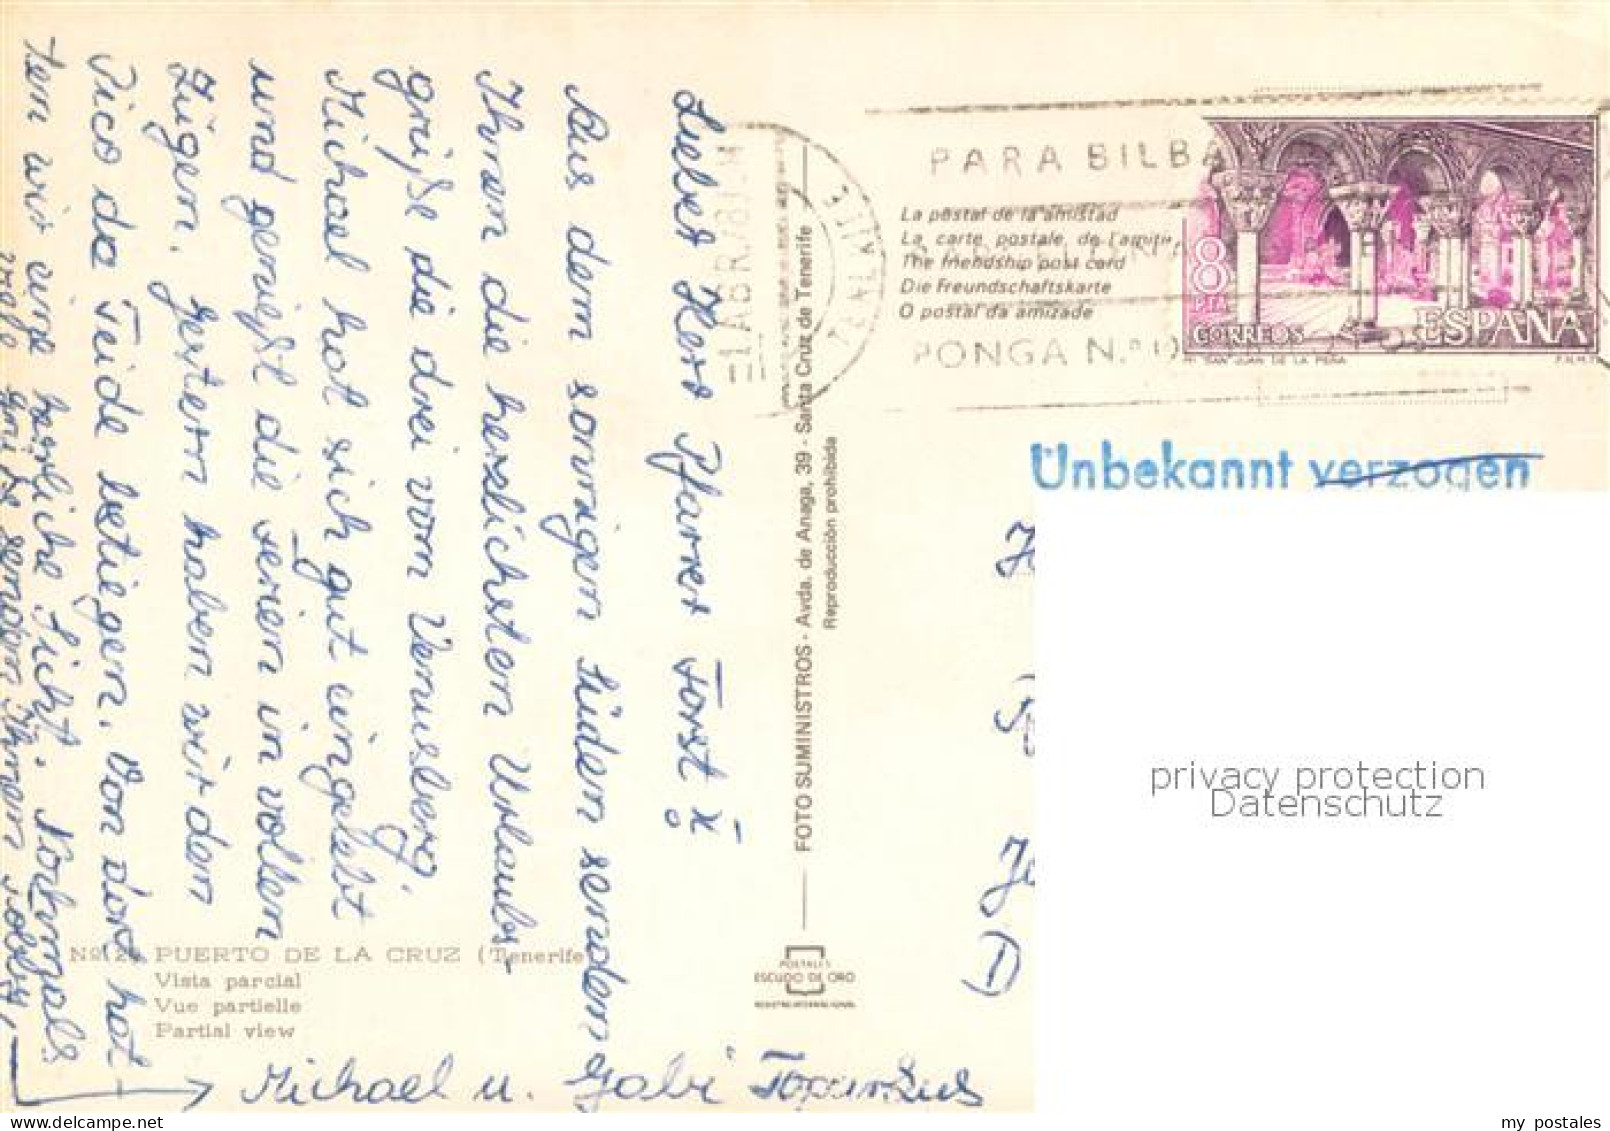 Lieber Herr Pfarrer Forst!
Aus dem sonnigen Süden senden
Ihnen die herzlichsten Urlaubs-
grüße die drei vom Venusberg.
Michael hat sich gut eingelebt
und genießt die Ferien in vollen
Zügen. Gestern haben wir den
Pico da Teide bestiegen. Von dort hat
man eine herrliche Sicht. Nochmals
viele Grüße senden Ihnen
Michael u. Gabi
Nº 24 PUERTO DE LA CRUZ (Tenerife)
Vista parcial
Vue partielle
Partial view
FOTO SUMINISTROS - Avda. de Anaga, 39 - Santa Cruz de Tenerife
Reproducción prohibida
POSTALES
ESCUDO DE ORO
1 ABR 78
TENERIFE
PARA BILBA
PONGA N.º
La postal de la amistad
La carte postale de l'amitié
The friendship post card
Die Freundschaftskarte
O postal da amizade
8
PTA
CORREOS
ESPAÑA
SAN JUAN DE LA PEÑA
F.N.M.T.
Unbekannt verzogen
D
privacy protection
Datenschutz
my postales